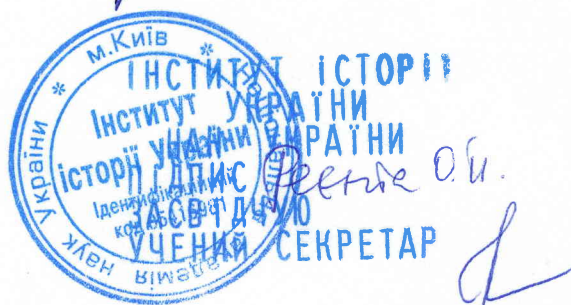 м.Київ
Національна академія наук України
Інститут
історії України
Ідентифікаційний
код
ІНСТИТУТ ІСТОРІЇ
УКРАЇНИ
НАН УКРАЇНИ
ПІДПИС Реєнта О.П.
ЗАСВІДЧУЮ
УЧЕНИЙ СЕКРЕТАР